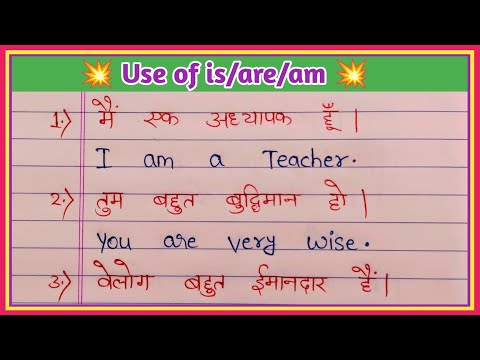 Use of is/are/am
1.) मैं एक अध्यापक हूँ |
I am a Teacher.
2.) तुम बहुत बुद्धिमान हो |
You are very wise.
3.) वेलोग बहुत ईमानदार हैं |